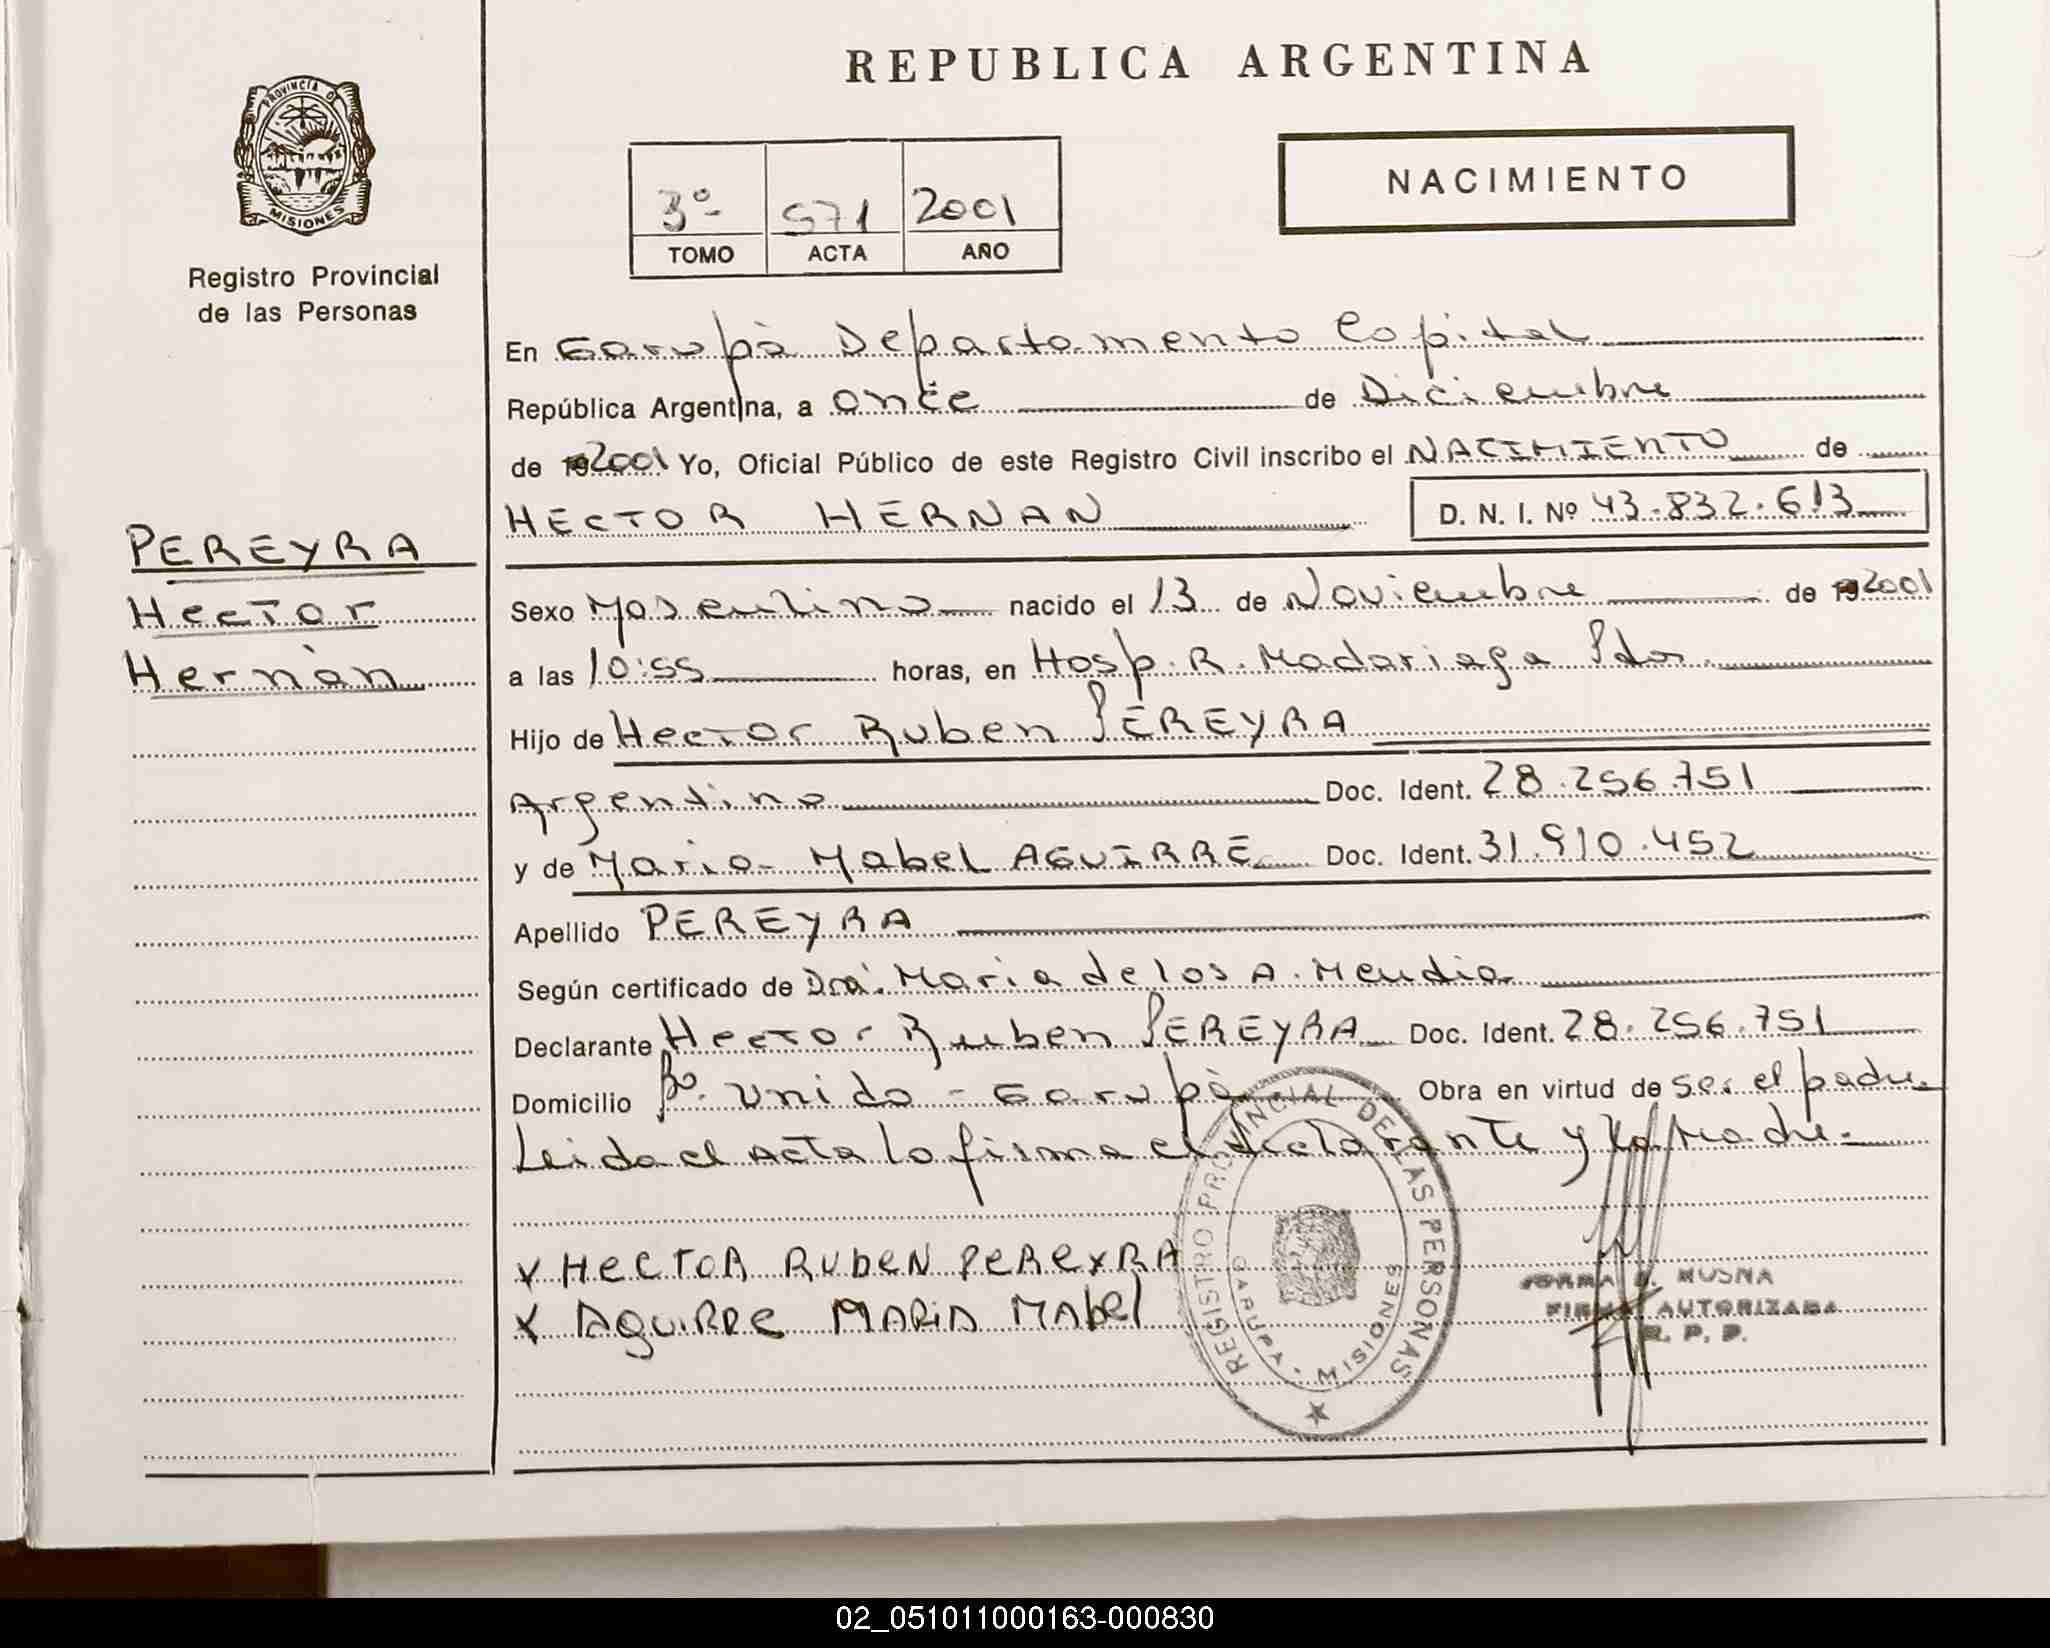 REPUBLICA ARGENTINA
PROVINCIA D
MISIONES
Registro Provincial
de las Personas
3º- 571 2001
TOMO ACTA AÑO
NACIMIENTO
En Garupà Departamento Capital
República Argentina, a once de Diciembre
de 192001 Yo, Oficial Público de este Registro Civil inscribo el NACIMIENTO de
HECTOR HERNAN D. N. I. Nº 43.832.613
PEREYRA
Hector
Hernàn
Sexo Masculino nacido el 13 de Noviembre de 192001
a las 10:55 horas, en Hosp. R. Madariaga Pdas.
Hijo de Hector Ruben PEREYRA
Argentino Doc. Ident. 28.256.751
y de Maria Mabel AGUIRRE Doc. Ident. 31.910.452
Apellido PEREYRA
Según certificado de Dra. Maria de los A. Mendia
Declarante Hector Ruben PEREYRA Doc. Ident. 28.256.751
Domicilio Bº. Unido - Garupà Obra en virtud de ser el padre
Leida el Acta la firma el declarante y la Madre.-
x HECTOR RUbEN PEREYRA
x AguiRRe MARIA MAbel
REGISTRO PROVINCIAL DE LAS PERSONAS
GARUPA - MISIONES
NORMA MUSNA
FIRMA AUTORIZADA
R. P. P.
02_051011000163-000830